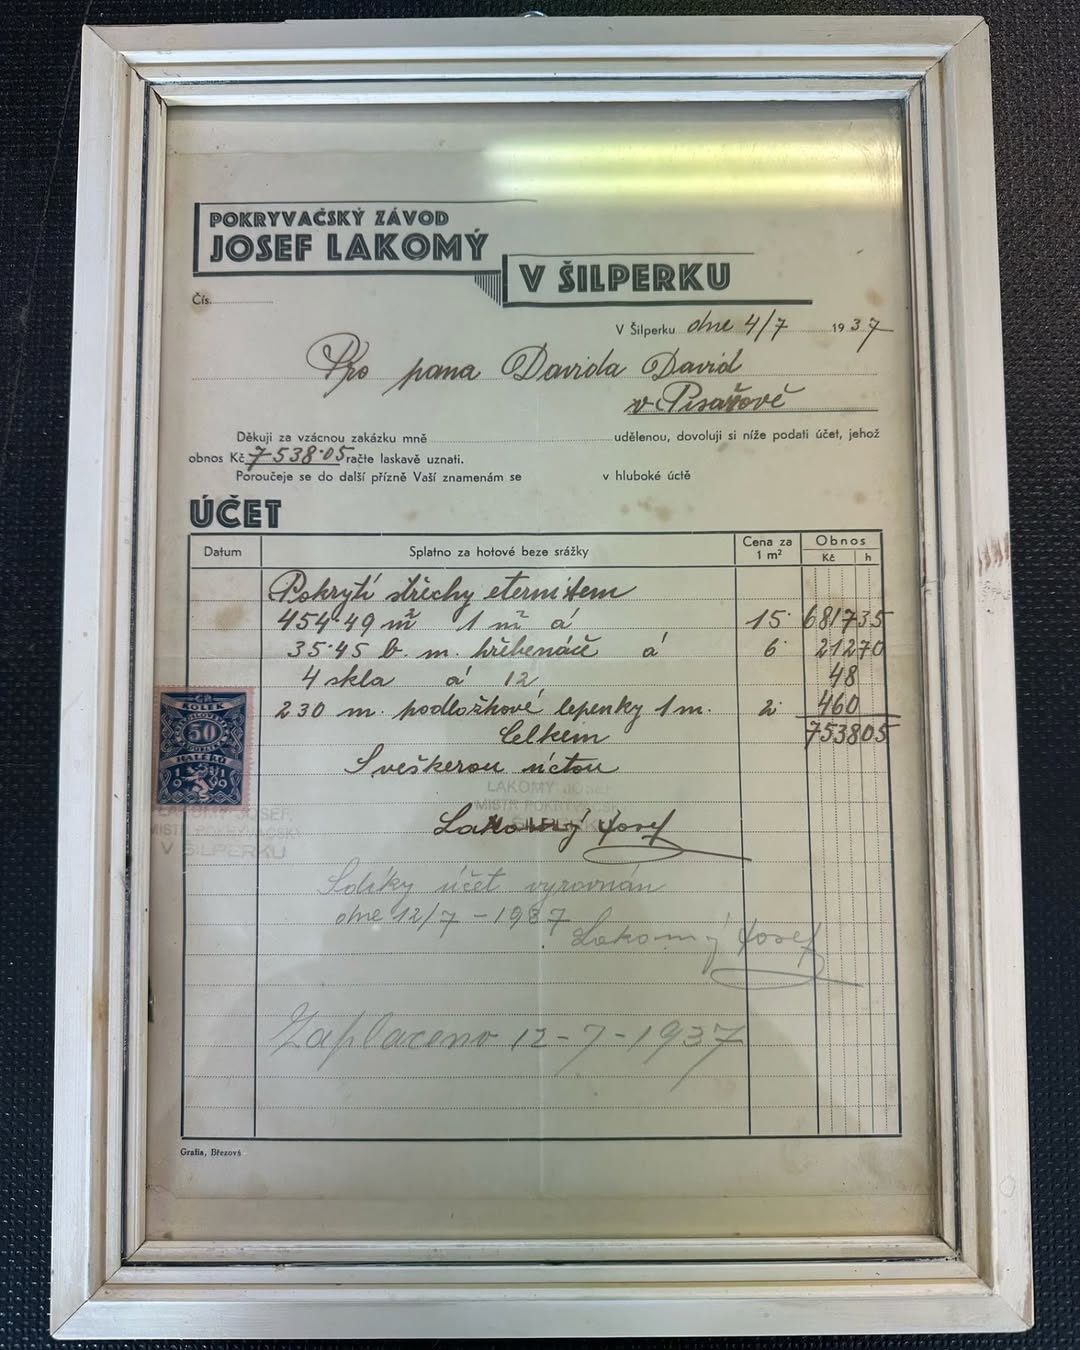 POKRYVAČSKÝ ZÁVOD
JOSEF LAKOMÝ
V ŠILPERKU
Čís.
V Šilperku dne 4/7 1937
Pro pana Davida David
v Písařově
Děkuji za vzácnou zakázku mně udělenou, dovoluji si níže podati účet, jehož
obnos Kč 7538·05 račte laskavě uznati.
Poroučeje se do další přízně Vaší znamenám se v hluboké úctě
ÚČET
Datum Splatno za hotové beze srážky Cena za 1 m² Obnos Kč h
Pokrytí střechy eternitem
454·49 m² 1 m² á 15· 681735
35·45 b. m. hřebenáče á 6· 21270
4 skla á 12 48
230 m. podložkové lepenky 1 m. 2· 460
Celkem 753805
S veškerou úctou
LAKOMÝ JOSEF
MISTR POKRYVAČSKÝ
V ŠILPERKU
Lakomý Josef
ČR
KOLEK
50
HALÉŘŮ
1919
LAKOMÝ JOSEF,
MISTR POKRYVAČSKÝ
V ŠILPERKU
S díky účet vyrovnán
dne 12/7 - 1937
Lakomý Josef
Zaplaceno 12-7-1937
Grafia, Březová